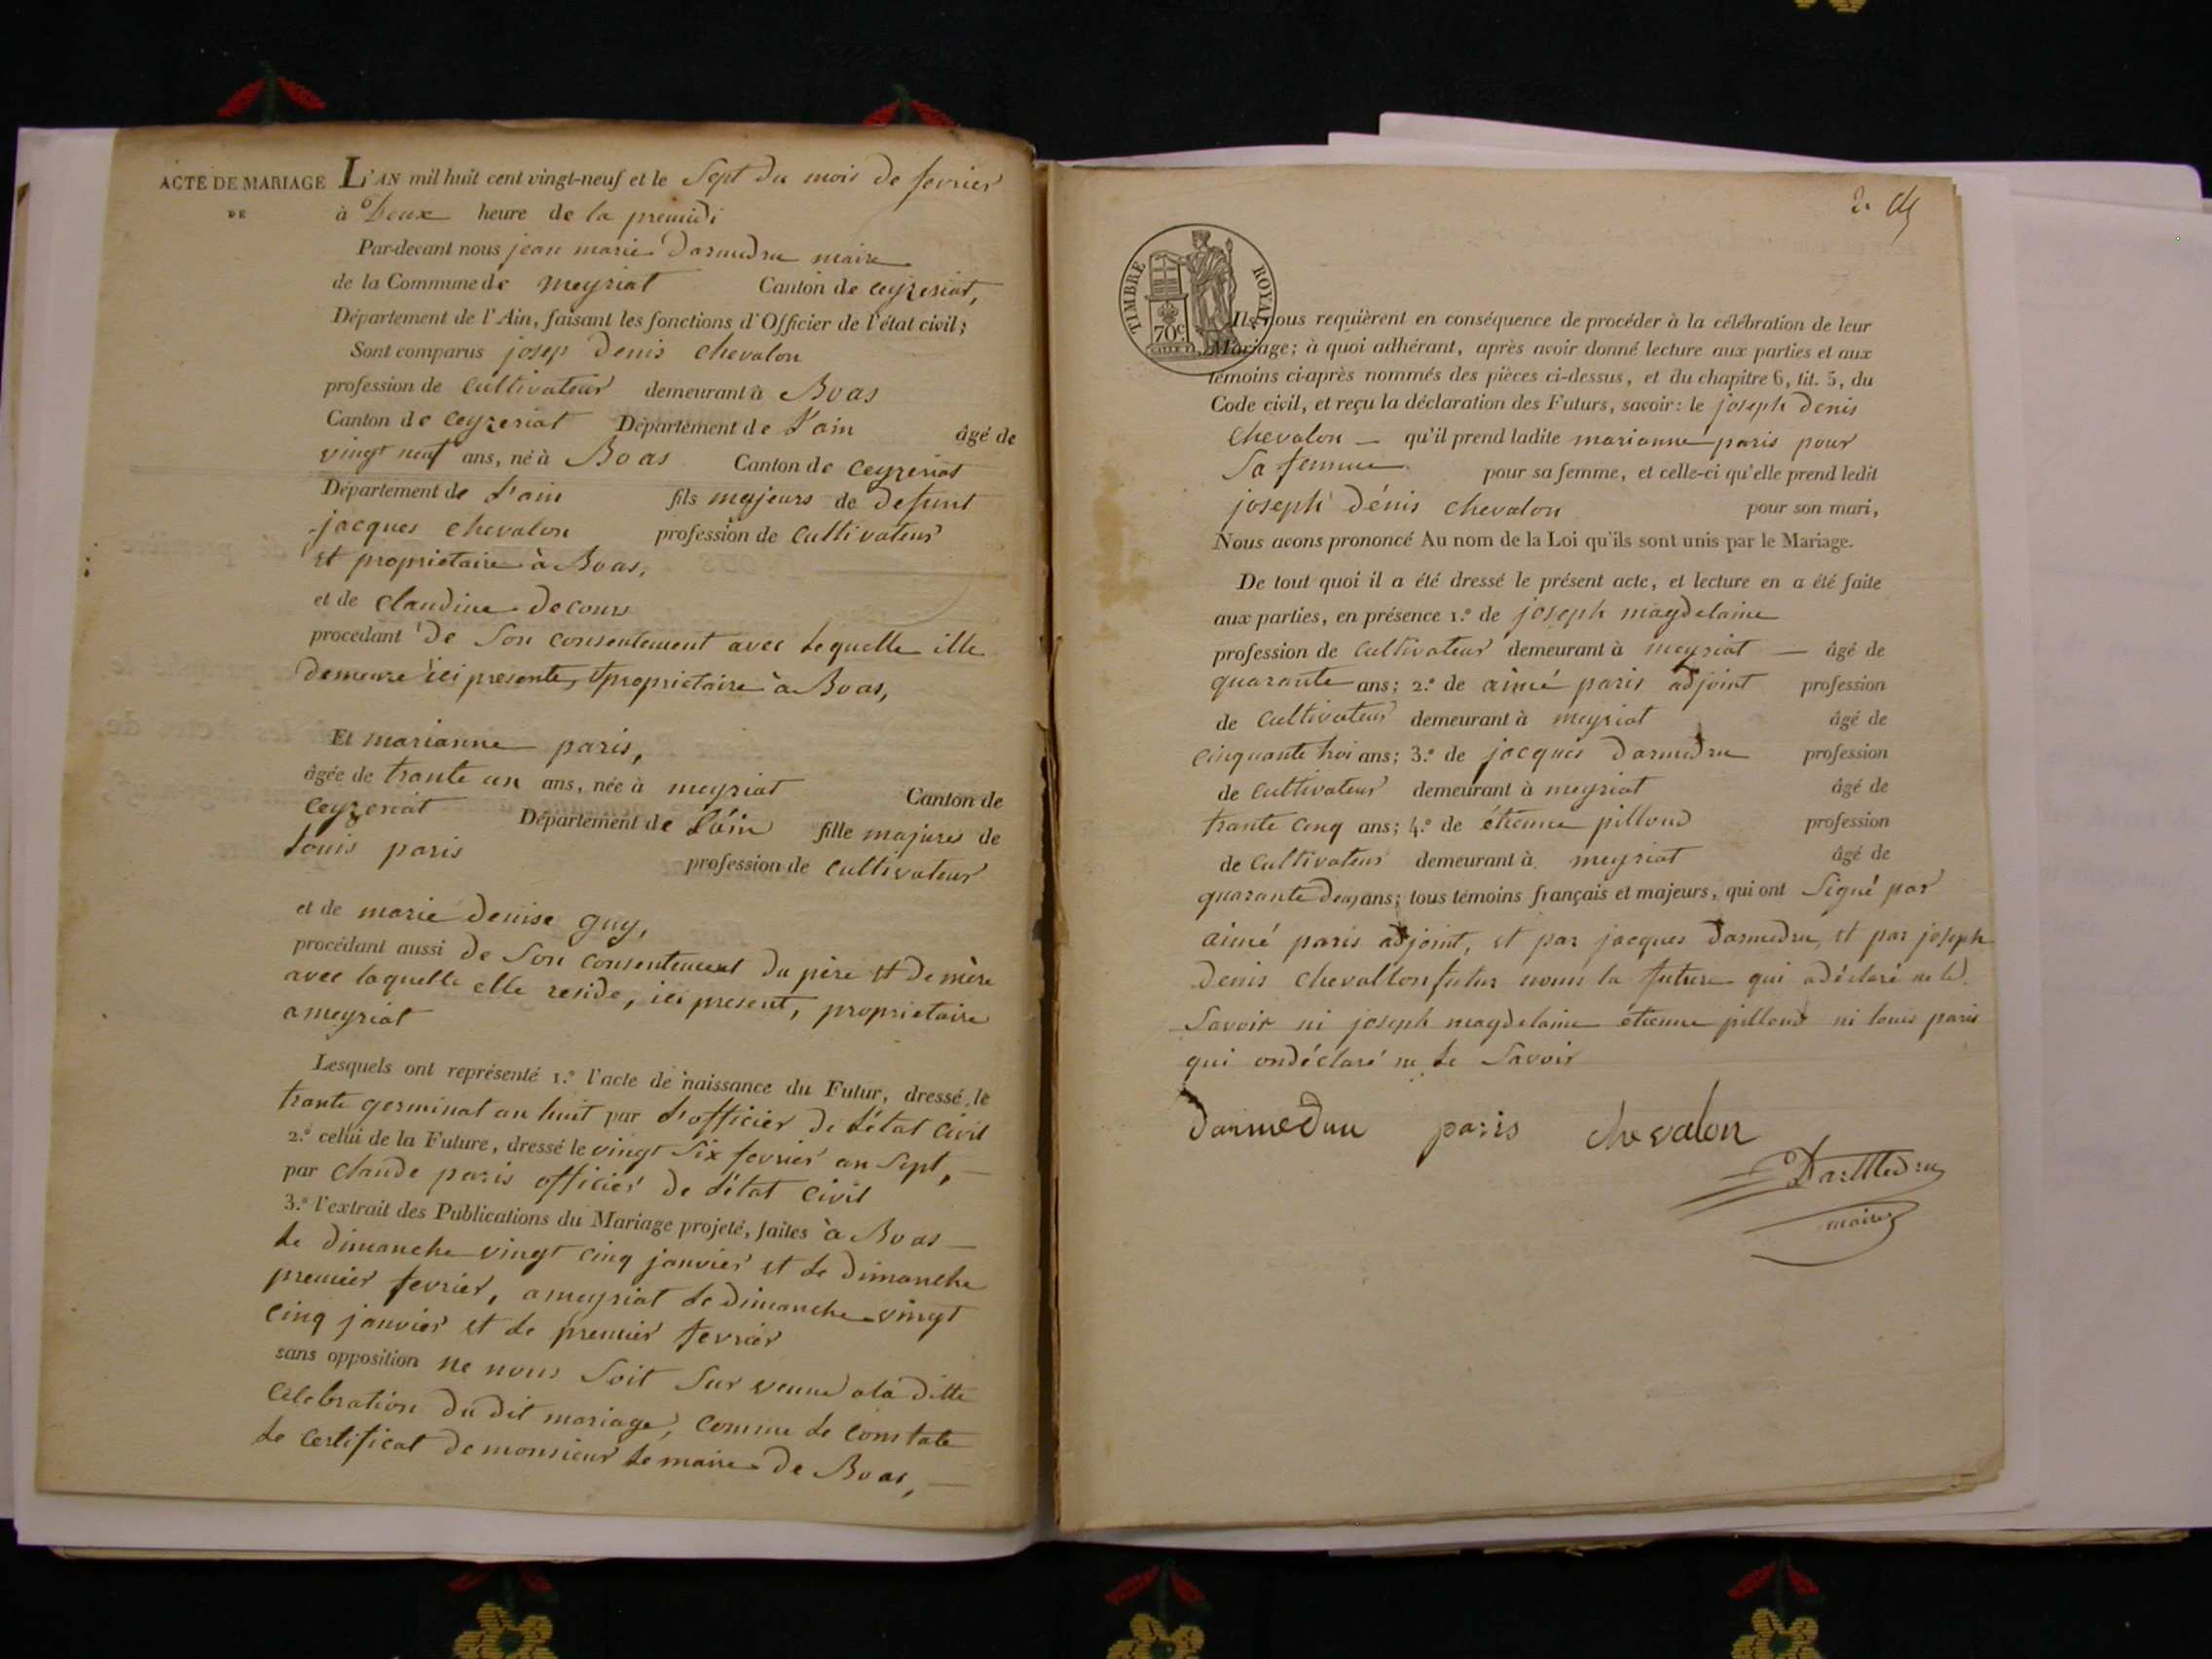 ACTE DE MARIAGE
DE
L'AN mil huit cent vingt-neuf et le Sept du mois de fevrier
à Deux heure de la premidi
Par-devant nous jean marie Darmedru maire
de la Commune de meyriat Canton de ceyzeriat,
Département de l'Ain, faisant les fonctions d'Officier de l'état civil;
Sont comparus josep denis chevalon
profession de cultivateur demeurant à Boas
Canton de ceyzeriat Département de L'ain âgé de
vingt neuf ans, né à Boas Canton de ceyzeriat
Département de L'ain fils majeurs de defunt
jacques chevalon profession de cultivateur
et proprietaire à Boas,
et de claudine decours
procédant de Son consentement avec lequelle ille
demeure ici presente, proprietaire à Boas,
Et marianne paris,
âgée de trante un ans, née à meyriat Canton de
ceyzeriat Département de L'ain fille majures de
Louis paris profession de cultivateur
et de marie denise guy,
procédant aussi de Son consentement du père et de mère
avec laquelle elle reside, ici present, proprietaire
a meyriat
Lesquels ont représenté 1.º l'acte de naissance du Futur, dressé le
trante germinal an huit par L'officier de L'état Civil
2.º celui de la Future, dressé le vingt Six fevrier an Sept,
par claude paris officier de L'état Civil
3.º l'extrait des Publications du Mariage projeté, faites à Boas
Le dimanche vingt cinq janvier et Le dimanche
premier fevrier, a meyriat Le dimanche vingt
cinq janvier et Le premier fevrier
sans opposition ne nous Soit Sur venue a la ditte
Celebration du dit mariage, Comme Le Constate
Le certificat de monsieur Le maire de Boas,
2.
TIMBRE ROYAL
70c.
Ils nous requièrent en conséquence de procéder à la célébration de leur
Mariage; à quoi adhérant, après avoir donné lecture aux parties et aux
témoins ci-après nommés des pièces ci-dessus, et du chapitre 6, tit. 5, du
Code civil, et reçu la déclaration des Futurs, savoir: le joseph denis
chevalon qu'il prend ladite marianne paris pour
Sa femme pour sa femme, et celle-ci qu'elle prend ledit
joseph dénis chevalon pour son mari,
Nous avons prononcé Au nom de la Loi qu'ils sont unis par le Mariage.
De tout quoi il a été dressé le présent acte, et lecture en a été faite
aux parties, en présence 1.º de joseph magdelaine
profession de cultivateur demeurant à meyriat âgé de
quarante ans; 2.º de aimé paris adjoint profession
de cultivateur demeurant à meyriat âgé de
cinquante troi ans; 3.º de jacques darmedru profession
de cultivateur demeurant à meyriat âgé de
trante cinq ans; 4.º de étienne pilloud profession
de cultivateur demeurant à meyriat âgé de
quarante deux ans; tous témoins français et majeurs, qui ont Signé par
aimé paris adjoint, et par jacques darmedru, et par joseph
denis chevallon futur nous la future qui adéclaré ne le
Savoir ni joseph magdelaine etienne pilloud ni louis paris
qui ondéclaré ne Le Savoir
darmedru paris chevalon
Darmedru
maire